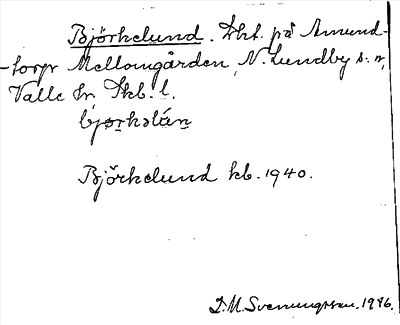 Björkelund. Lht. på Amund-
-torp Mellomgården, N. Lundby s:n,
Valle hr, Skb. l.
Björkelund kb. 1940.
D.M. Svenungsson. 1976.